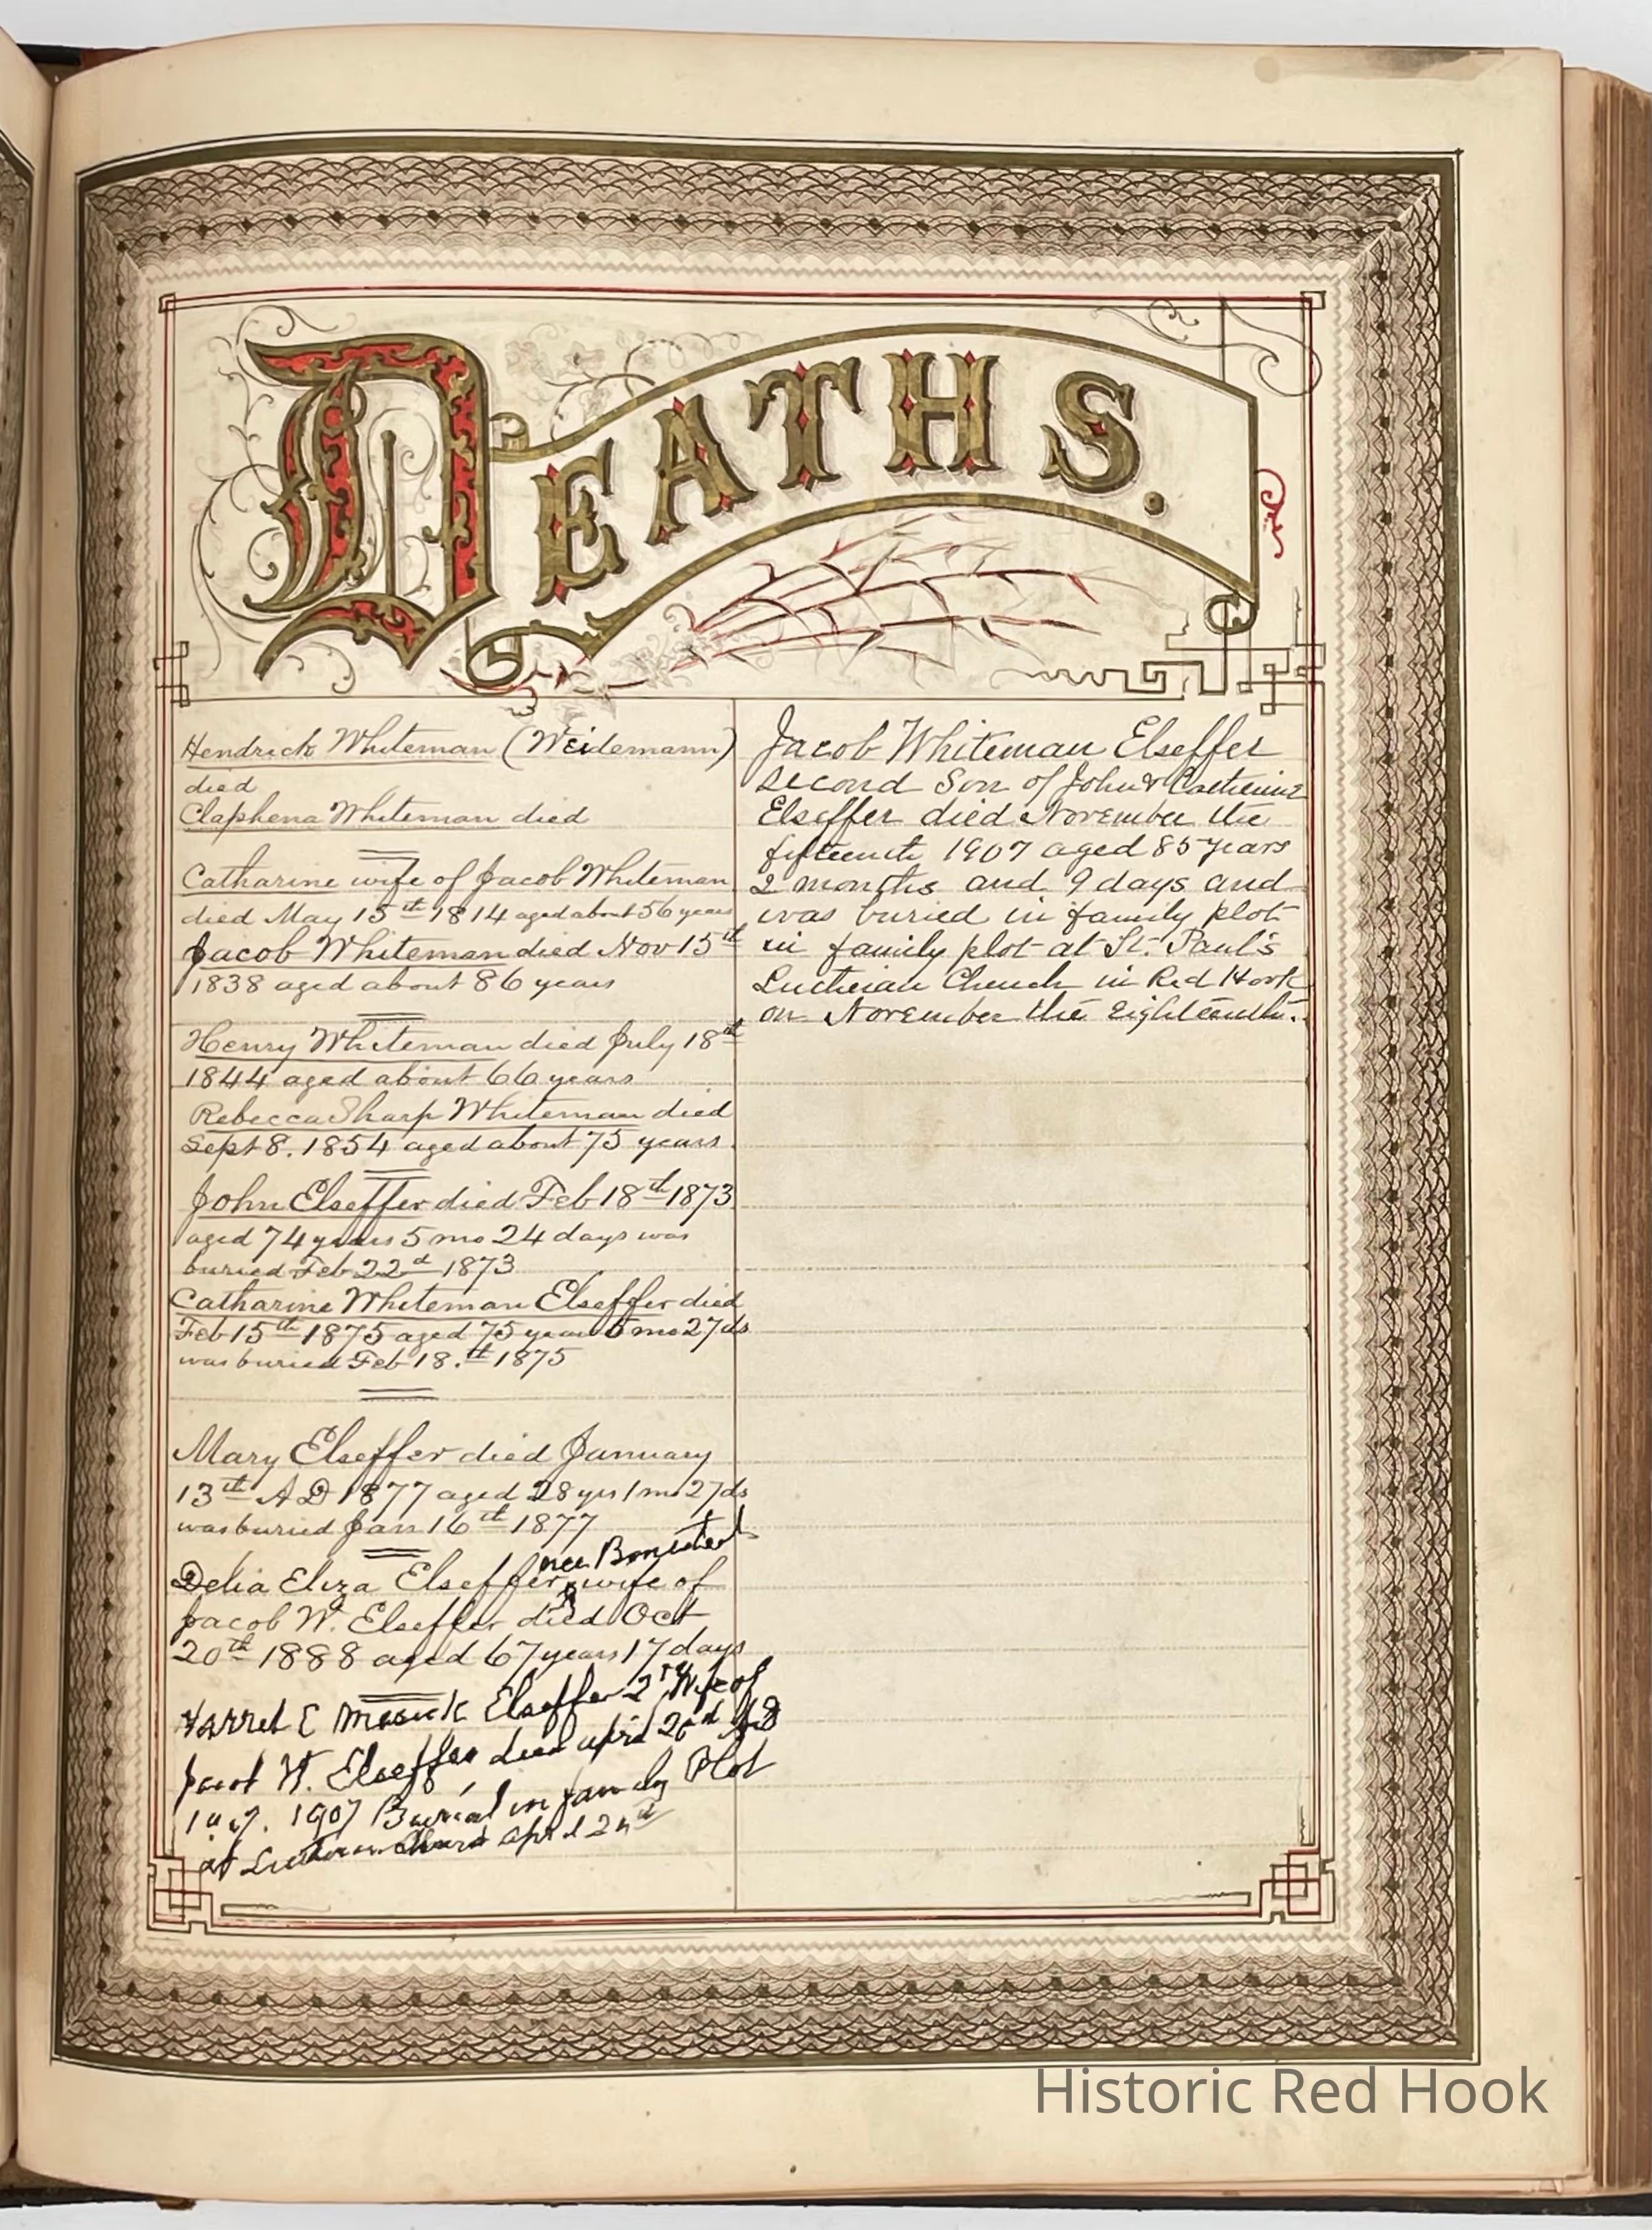 DEATHS.
Hendrick Whiteman (Weidemann)
died
Claphena Whiteman died
Catharine wife of Jacob Whiteman
died May 15th 1814 aged about 56 years
Jacob Whiteman died Nov 15th
1838 aged about 86 years
Henry Whiteman died July 18th
1844 aged about 66 years
Rebecca Sharp Whiteman died
Sept 8. 1854 aged about 75 years.
John Elseffer died Feb 18th 1873
aged 74 years 5 mo 24 days was
buried Feb 22d 1873
Catharine Whiteman Elseffer died
Feb 15th 1875 aged 75 years 6 mo 27 ds
was buried Feb 18.th 1875
Mary Elseffer died January
13th A D 1877 aged 28 yrs 1 mo 27 ds
was buried Jan 16th 1877
nee
Delia Eliza Elseffer wife of
Jacob W. Elseffer died Oct
20th 1888 aged 67 years 17 days
Harret E Mesick Elseffer 2nd Wife of
Jacob W. Elseffer died april
1907 Burial in family Plot
at Lutheran april
Jacob Whiteman Elseffer
second Son of John & Catherine
Elseffer died November the
fifteenth 1907 aged 85 years
2 months and 9 days and
was buried in family plot
in family plot at St. Paul's
Lutheran Church in Red Hook
on November the Eighteenth.
Historic Red Hook